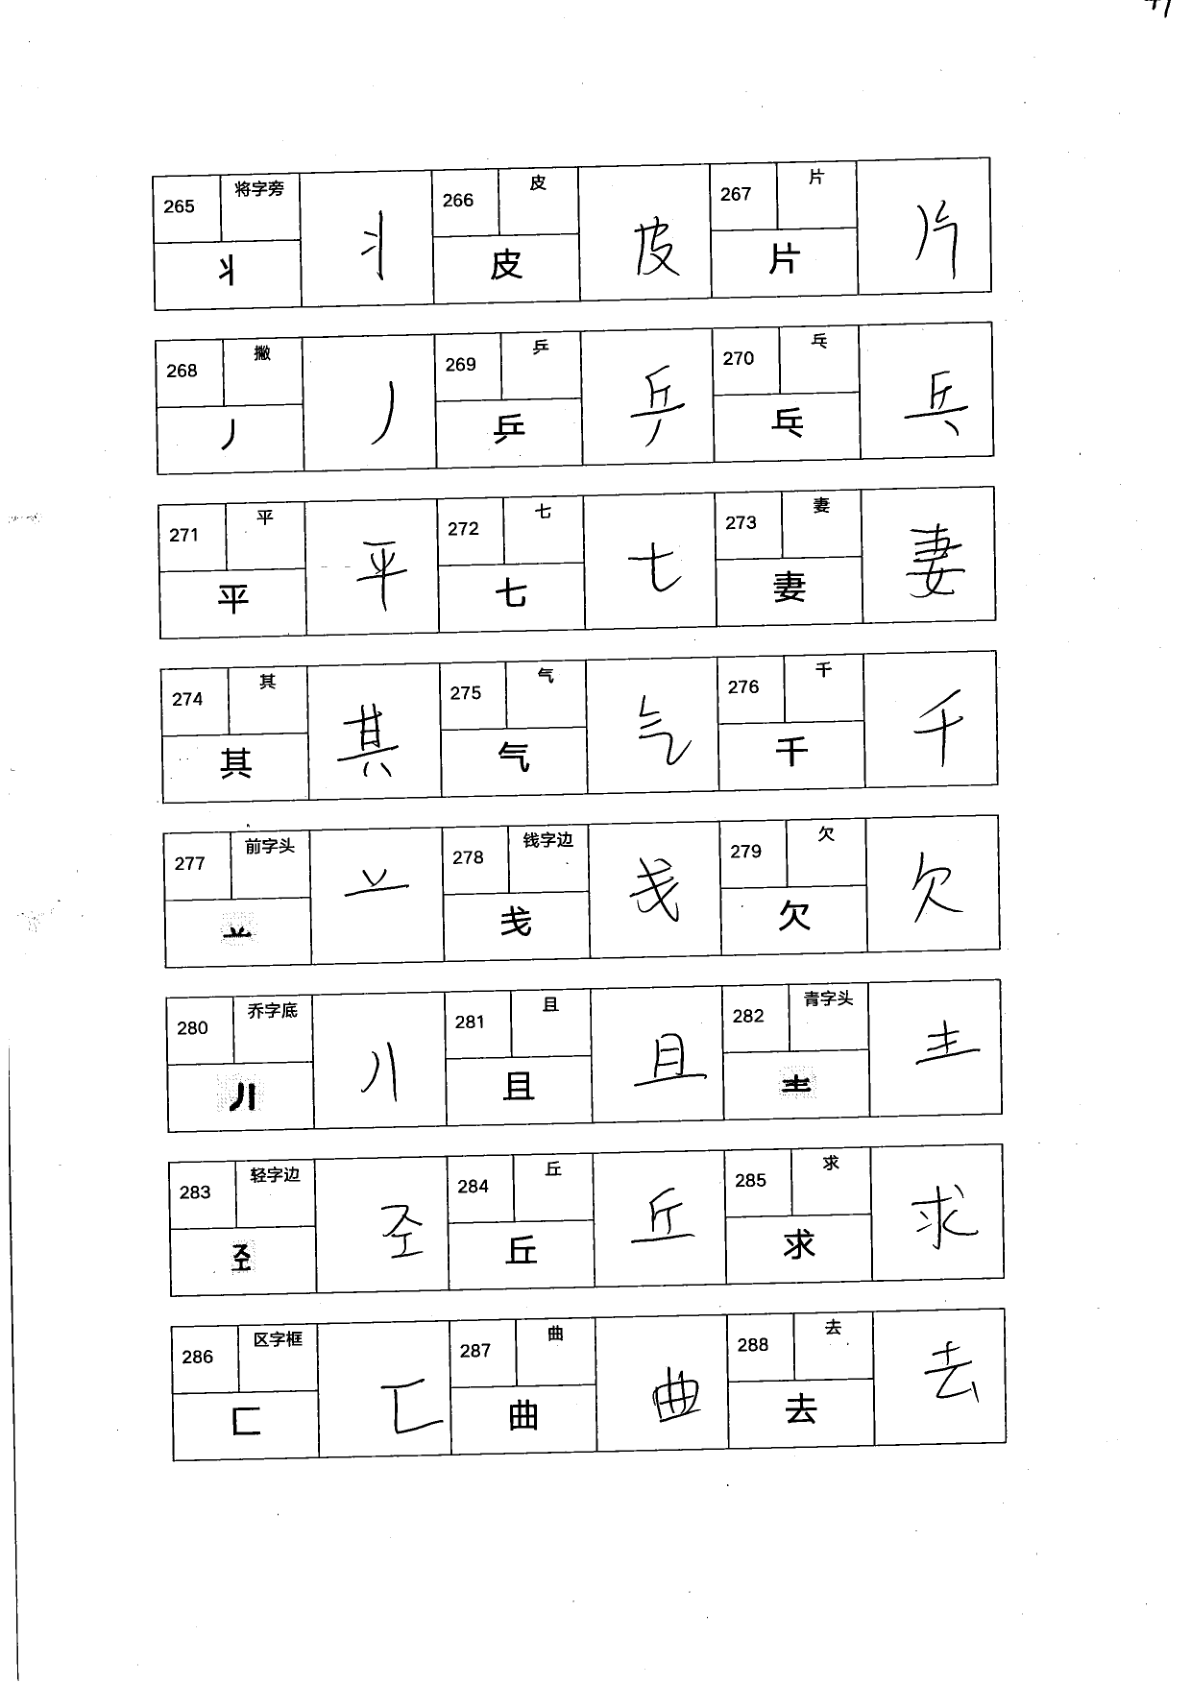 265 将字旁 丬 丬 266 皮 皮 皮 267 片 片 片
268 撇 丿 丿 269 乒 乒 乒 270 乓 乓 乓
271 平 平 平 272 七 七 七 273 妻 妻 妻
274 其 其 其 275 气 气 气 276 千 千 千
277 前字头 䒑 䒑 278 钱字边 戋 戋 279 欠 欠 欠
280 乔字底 〢 〢 281 且 且 且 282 青字头 龶 龶
283 轻字边 𢀖 𢀖 284 丘 丘 丘 285 求 求 求
286 区字框 匚 匚 287 曲 曲 曲 288 去 去 去